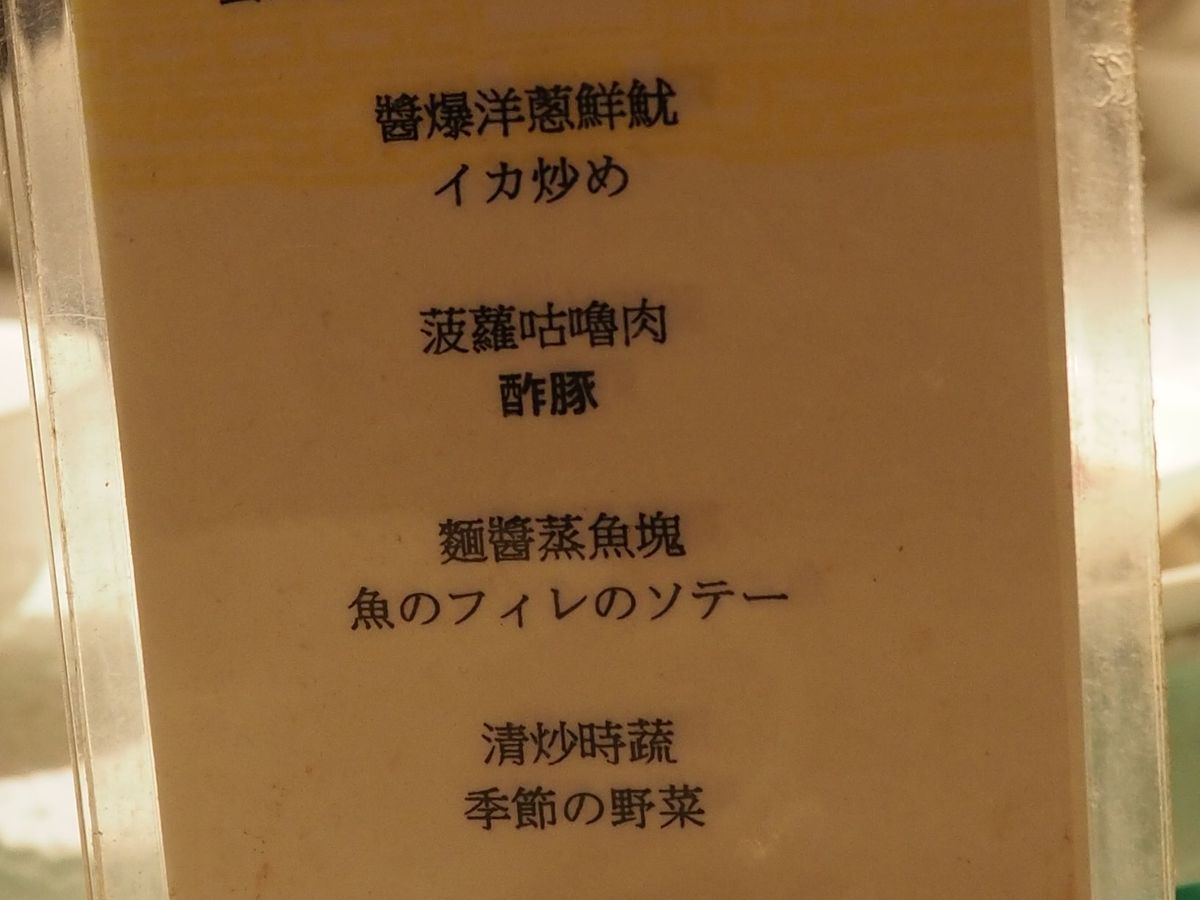 醬爆洋蔥鮮魷
イカ炒め
菠蘿咕嚕肉
酢豚
麵醬蒸魚塊
魚のフィレのソテー
清炒時蔬
季節の野菜